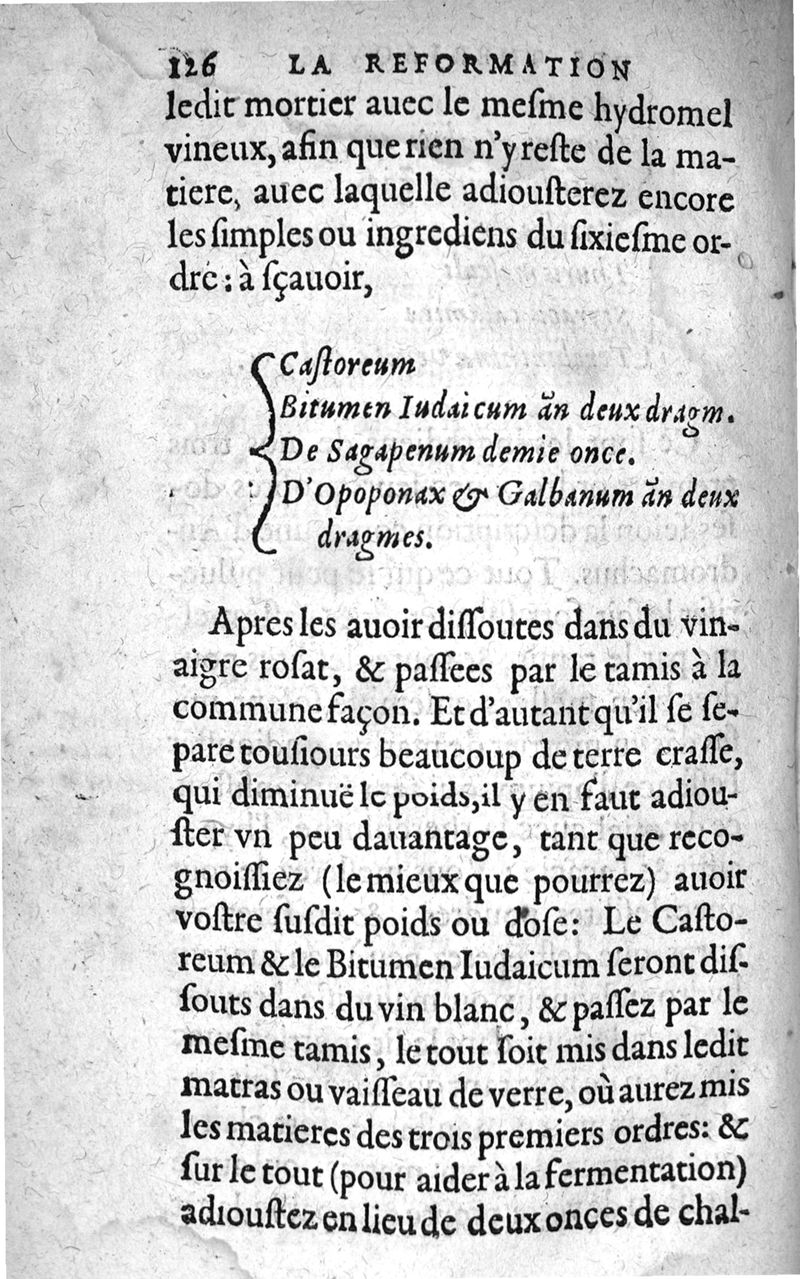 126 LA REFORMATION
ledit mortier auec le meſme hydromel
vineux, afin que rien n'y reſte de la ma-
tiere, auec laquelle adiouſterez encore
les ſimples ou ingrediens du ſixieſme or-
dre : à ſçauoir,
Caſtoreum
Bitumen Iudaicum ãn deux dragm.
De Sagapenum demie once.
D'Opoponax & Galbanum ãn deux
dragmes.
Apres les auoir diſſoutes dans du vin-
aigre roſat, & paſſees par le tamis à la
commune façon. Et d'autant qu'il ſe ſe-
pare touſiours beaucoup de terre craſſe,
qui diminuë le poids, il y en faut adiou-
ſter vn peu dauantage, tant que reco-
gnoiſſiez (le mieux que pourrez) auoir
voſtre ſuſdit poids ou doſe: Le Caſto-
reum & le Bitumen Iudaicum ſeront diſ-
ſouts dans du vin blanc, & paſſez par le
meſme tamis, le tout ſoit mis dans ledit
matras ou vaiſſeau de verre, où aurez mis
les matieres des trois premiers ordres: &
ſur le tout (pour aider à la fermentation)
adiouſtez en lieu de deux onces de chal-